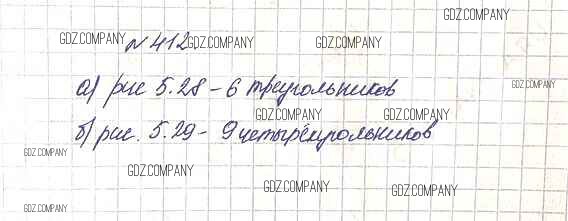 GDZ.COMPANY
№ 412. GDZ.COMPANY GDZ.COMPANY GDZ.COMPANY
а) рис 5.28 – 6 треугольников GDZ.COMPANY
GDZ.COMPANY GDZ.COMPANY
б) рис. 5.29 – 9 четырёхугольников
GDZ.COMPANY
GDZ.COMPANY
GDZ.COMPANY GDZ.COMPANY
GDZ.COMPANY